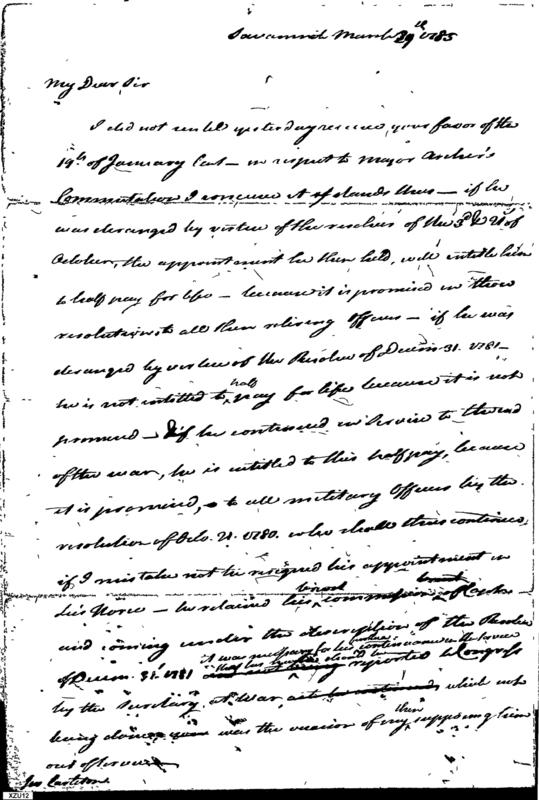 Savannah March 29th 1785
My Dear Sir
I did not until yesterday receive your favor of the
19th of January last — in respect to Major Archer's
Commutation I conceive it stands thus — if he
was deranged by virtue of the resolves of the 3d & 21st of
October, the appointment he then held, will entitle him
to half pay for life — because it is promised in those
resolutions to all then retiring Officers — if he was
deranged by virtue of the Resolve of Decem. 31. 1781 —
he is not intitled to half pay for life because it is not
promised — If he continued in Service to the end
of the war, he is intitled to this half pay, because
it is promised, to all military Officers by the
resolution of Octo. 21. 1780. who shall thus continue,
if I mistake not he resigned his appointment in
— he retained his brevet
and coming under the description of the Resolve
of Decem. 31st 1781 it was necessary for his continuance in the Service
that his should be reported to Congress
by the Secretary at War, which not
being done was the reason of my then supposing him
out of Service
Jos Carleton
XZU12